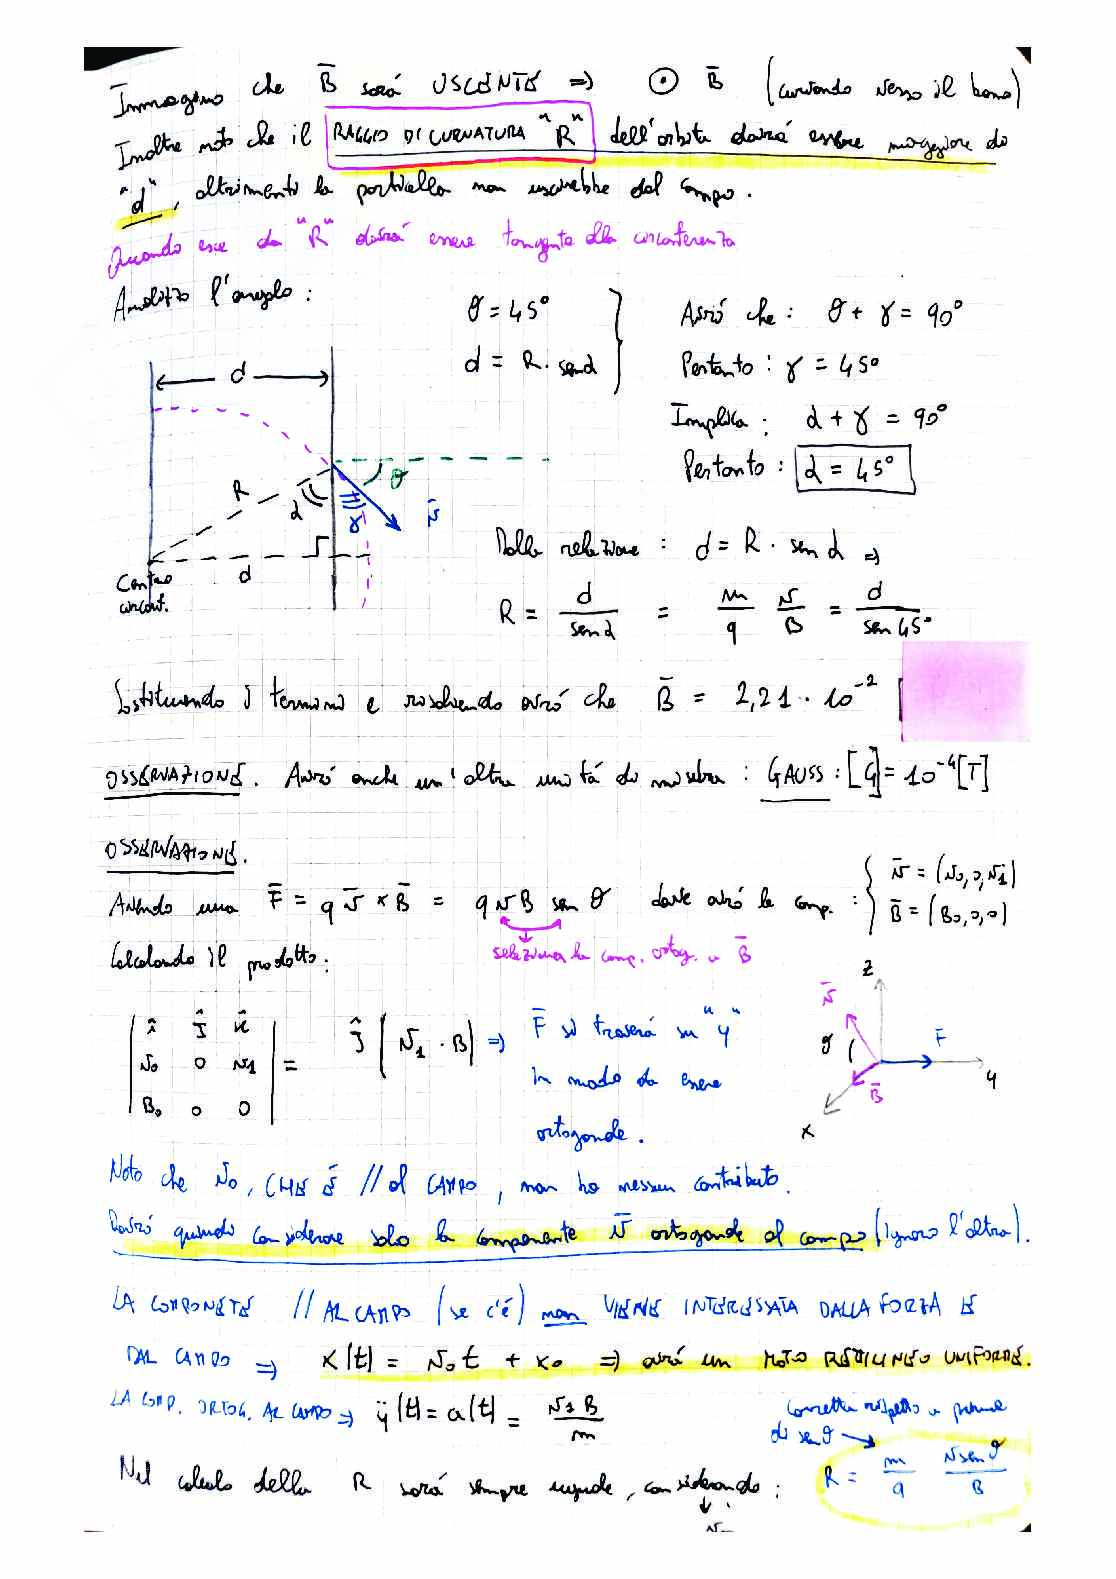 Immagino che B̄ sarà USCENTE => ⊙ B̄ (curvando verso il basso)
Inoltre noto che il RAGGIO DI CURVATURA "R" dell'orbita dovrà essere maggiore di
"d", altrimenti la particella non uscirebbe dal campo.
Quando esce da "R" dovrà essere tangente alla circonferenza
Analizzo l'angolo:
θ = 45°
d = R · sen α
Avrò che: θ + γ = 90°
Pertanto: γ = 45°
Implica: α + γ = 90°
Pertanto: α = 45°
d
R
α
γ
θ
v̄
d
Centro
circonf.
Dalla relazione: d = R · sen α =>
R = d / sen α = m/q v/B = d / sen 45°
Sostituendo i termini e risolvendo avrò che B̄ = 2,21 · 10⁻² [
OSSERVAZIONE. Avrò anche un'altra unità di misura: GAUSS: [G] = 10⁻⁴ [T]
OSSERVAZIONE.
Avendo una F̄ = q v̄ × B̄ = q v B sen θ dove avrò le comp.: { v̄ = (v₀, 0, v₁)
B̄ = (B₀, 0, 0)
seleziona la comp. ortog. a B̄
Calcolando il prodotto:
î ĵ k̂
v₀ 0 v₁
B₀ 0 0
= ĵ (v₁ · B) => F̄ si troverà su "y"
in modo da essere
ortogonale.
z
v̄
θ
F̄
y
B̄
x
Noto che v₀, CHE È // al CAMPO, non ha nessun contributo.
Dovrò quindi considerare solo la componente v̄ ortogonale al campo (ignoro l'altra).
LA COMPONETE // AL CAMPO (se c'è) non VIENE INTERESSATA DALLA FORZA E
DAL CAMPO => x(t) = v₀t + x₀ => avrà un MOTO RETILINEO UNIFORME.
LA COMP. ORTOG. AL CAMPO => ÿ(t) = a(t) = v₁ B / m
Corretta rispetto a prima
di sen θ
Nel calcolo della R sarà sempre uguale, considerando: R = m/q v sen θ / B